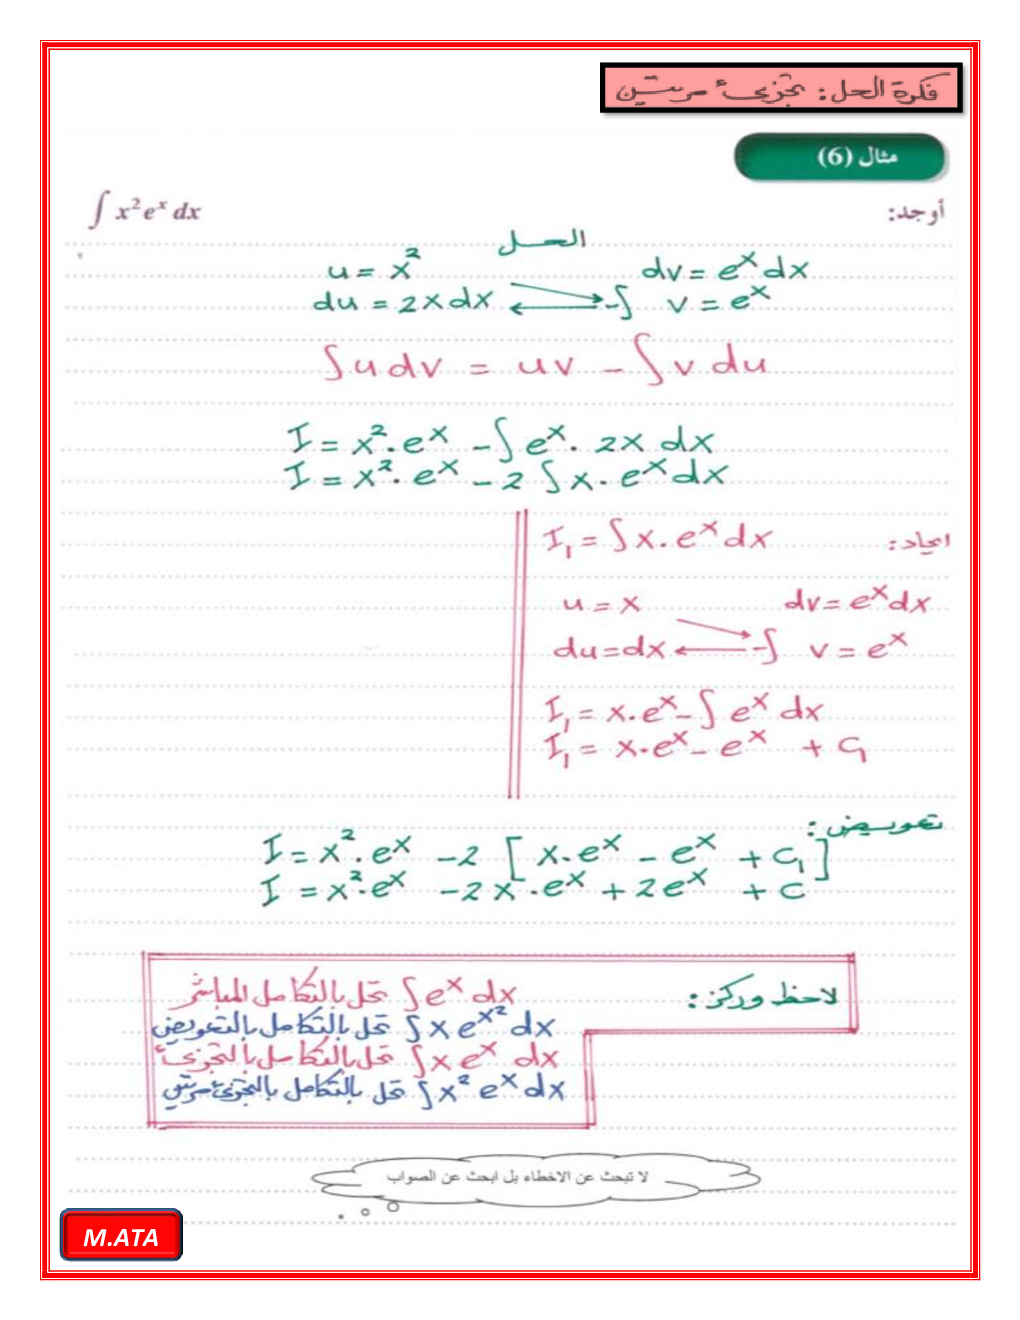 فكرة الحل: تجزيء مرتين
مثال (6)
أوجد: ∫ x² eˣ dx
الحل
u = x²   dv = eˣ dx
du = 2x dx   -∫ v = eˣ
∫ u dv = uv - ∫ v du
I = x² . eˣ - ∫ eˣ . 2x dx
I = x² . eˣ - 2 ∫ x . eˣ dx
ايجاد: I₁ = ∫ x . eˣ dx
u = x   dv = eˣ dx
du = dx   -∫ v = eˣ
I₁ = x . eˣ - ∫ eˣ dx
I₁ = x . eˣ - eˣ + C₁
تعويض:
I = x² . eˣ - 2 [ x . eˣ - eˣ + C₁ ]
I = x² . eˣ - 2x . eˣ + 2eˣ + C
لاحظ وركز: ∫ eˣ dx تحل بالتكامل المباشر
∫ x e^(x²) dx تحل بالتكامل بالتعويض
∫ x eˣ dx تحل بالتكامل بالتجزيء
∫ x² eˣ dx تحل بالتكامل بالتجزيء مرتين
لا تبحث عن الاخطاء بل ابحث عن الصواب
M.ATA